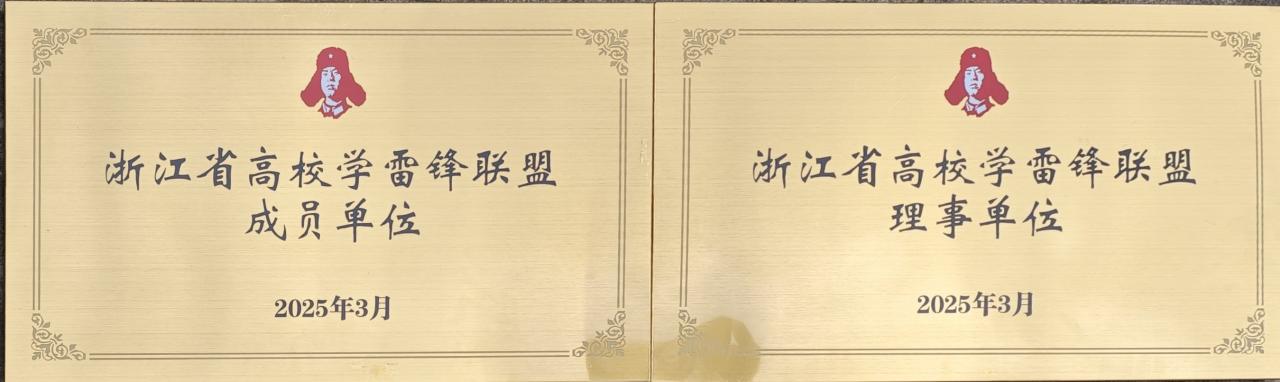 浙江省高校学雷锋联盟
成员单位
2025年3月
浙江省高校学雷锋联盟
理事单位
2025年3月